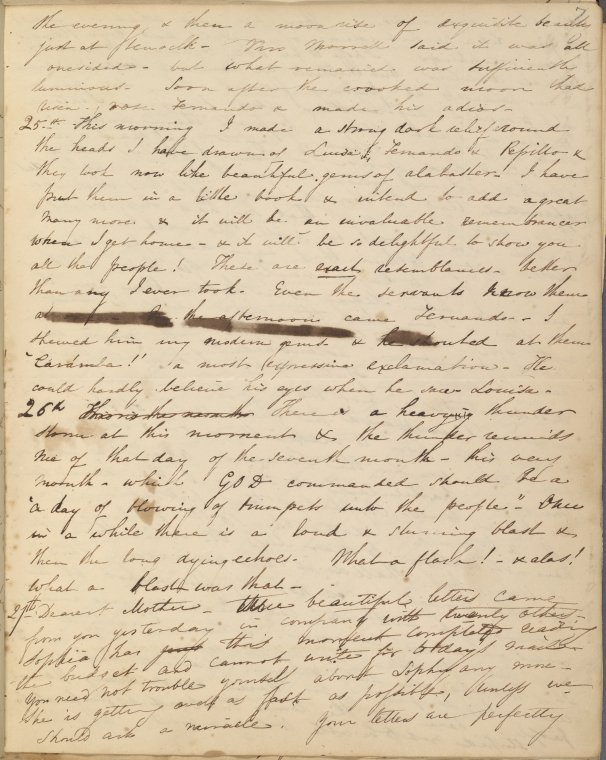 7
the evening & then a moonrise of exquisite beauty
just at o'clock – Mrs Morrell said it was all
onesided – but what remained was sufficiently
luminous – Soon after the crooked moon had
risen, rose Fernando & made his adios –
25th This morning I made a strong dark relief round
the heads I have drawn of Luisa, Fernando & Pepillo &
they look now like beautiful gems of alabaster. I have
put them in a little book & intend to add a great
many more & it will be an invaluable remembrancer
when I get home – & it will be so delightful to show you
all the people! These are exact resemblances – better
than any I ever took – Even the servants know them
at the afternoon came Fernando – I
shewed him my modern gems & he shouted at them
"Caramba!" a most expressive exclamation – He
could hardly believe his eyes when he saw Louisa –
26th There is a heavy thunder
storm at this moment & the thunder reminds
me of that day of the seventh month – this very
month – which GOD commanded should be a
"a day of blowing of trumpets unto the people" – Once
in a while there is a loud & stunning blast &
then the long dying echoes – What a flash! – & alas!
what a blast was that –
27th Dearest Mother – Three beautiful letters came
from you yesterday in company with twenty others
Sophia has just this moment completed reading
the budget and cannot write for today's mail –
You need not trouble yourself about Sophy any more –
She is getting well as fast as possible, unless we
should ask a miracle. Your letters are perfectly